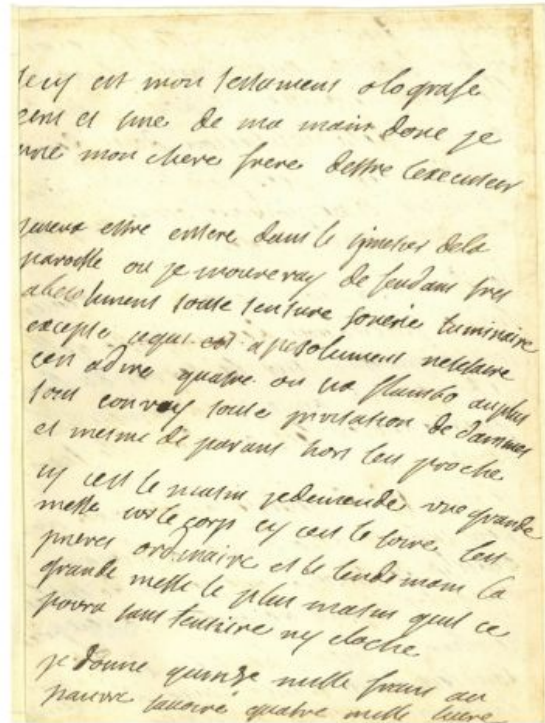 Cecy est mon testament olografe
ecrit et sine de ma main donc je
prie mon chere frere destre lexecuteur
je veux estre entere dans le simetier dela
paroisse ou je moureray de fendant tres
absolument toute tenture sonerie luminaire
excepte cequi est apesolument nessesaire
cest adire quatre ou six flambo auplus
tout convoy toute invitation de dammes
et mesme de parans hors les proche
cy cest le matin je demende une grande
messe sur le corps cy cest le soire les
prieres ordinaire et le lendemain la
grande messe le plus matin quil ce
poura sans tenture ny cloche
je donne quinze mille frans au
pauvre savoire quatre mille livre